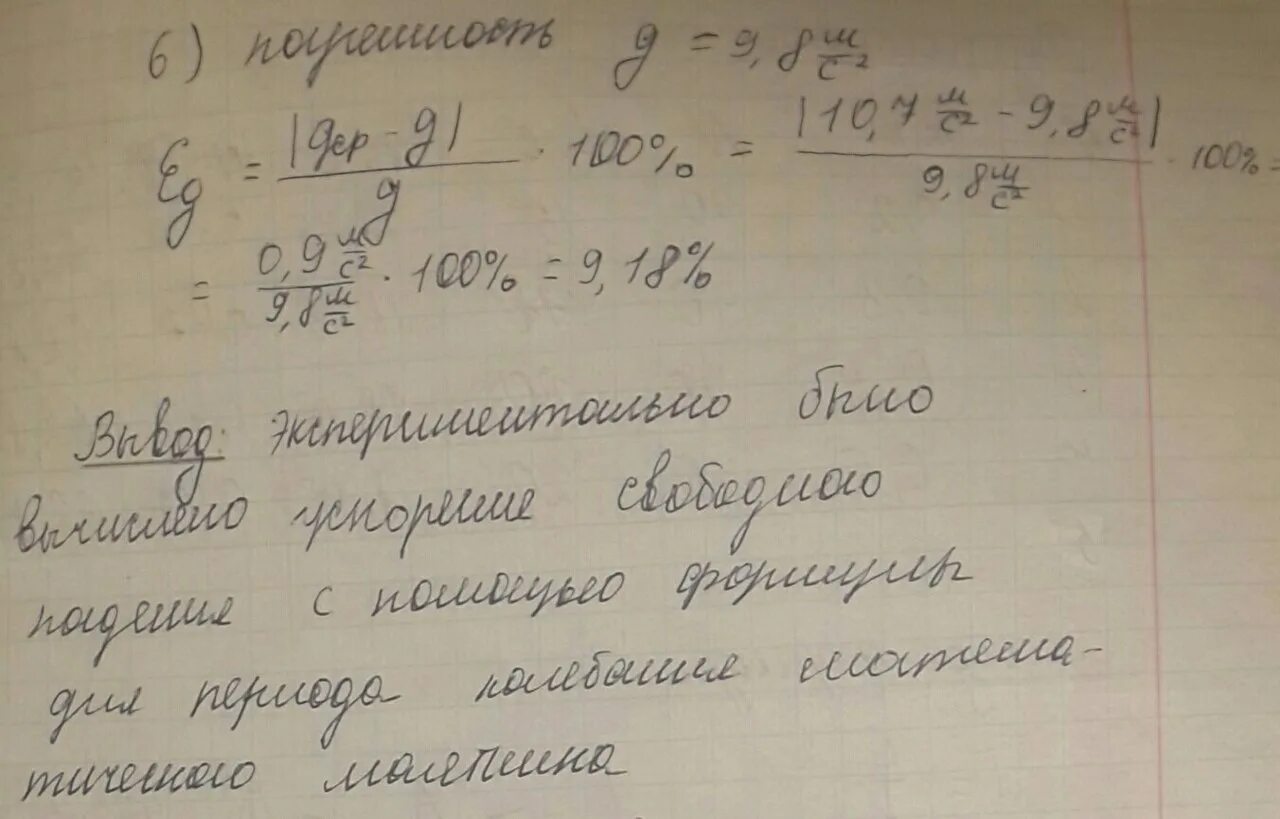 6) погрешность g = 9,8 м/с²
Eg = |gср - g|/g · 100% = |10,7 м/с² - 9,8 м/с²|/9,8 м/с² · 100% =
= 0,9 м/с²/9,8 м/с² · 100% = 9,18%
Вывод: экспериментально было
вычислено ускорение свободного
падения с помощью формулы
для периода колебания матема-
тического маятника